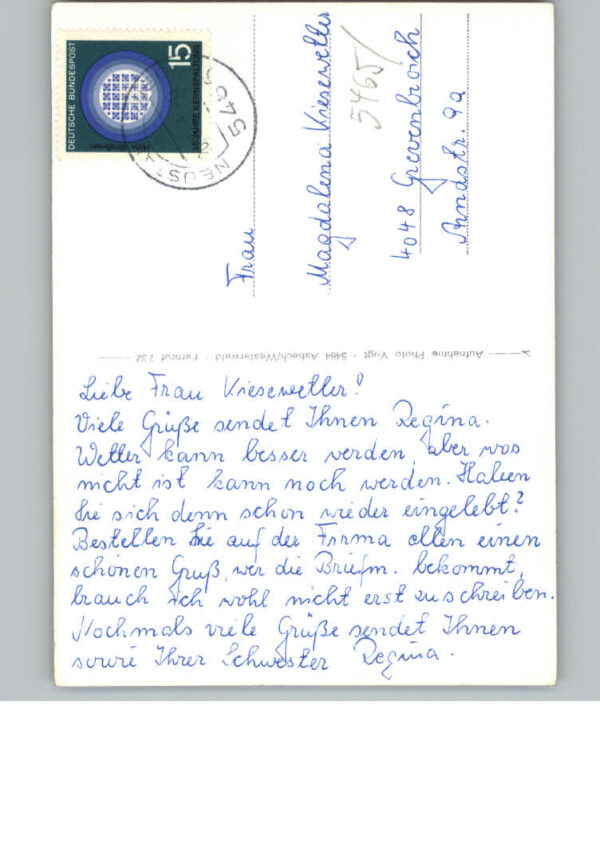 Liebe Frau Kiesewetter!
Viele Grüße sendet Ihnen Regina.
Wetter kann besser werden, aber was
nicht ist kann noch werden. Haben
Sie sich denn schon wieder eingelebt?
Bestellen Sie auf der Firma allen einen
schönen Gruß, wer die Briefm. bekommt,
brauch ich wohl nicht erst zu schreiben.
Nochmals viele Grüße sendet Ihnen
sowie Ihrer Schwester Regina.
Aufnahme Photo Vogt · 5464 Asbach/Westerwald · Fernruf 732
Frau
Magdalena Kiesewetter
4048 Grevenbroich
Arndstr. 9a
5465/
DEUTSCHE BUNDESPOST
15
JAHRE KERNSPALTUNG
545
NEUST